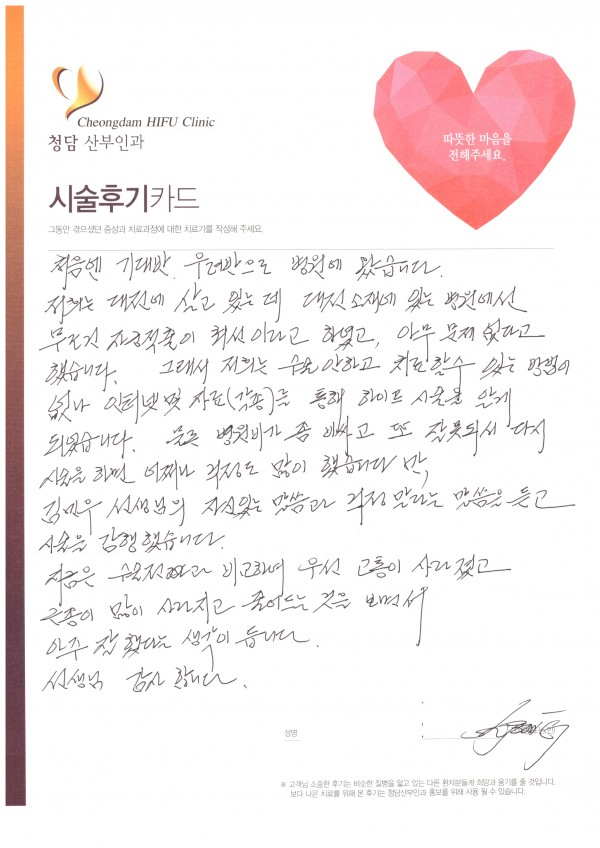 Cheongdam HIFU Clinic
청담 산부인과
따뜻한 마음을
전해주세요.
시술후기카드
그동안 겪으셨던 증상과 치료과정에 대한 치료기를 작성해 주세요.
처음엔 기대반, 우려반으로 병원에 왔습니다.
저희는 대전에 살고 있는데 대전 소재에 있는 병원에선
무조건 자궁적출이 최선이라고 하였고, 아무 문제 없다고
했습니다. 그래서 저희는 수술 안하고 치료할수 있는 방법이
없나 인터넷 및 자료(각종)를 통해 하이프 시술을 알게
되었습니다. 물론 병원비가 좀 비싸고 또 잘못되서 다시
시술을 하면 어쩌나 걱정도 많이 했습니다만,
김민우 선생님의 자신있는 말씀과 걱정 말라는 말씀을 듣고
시술을 감행했습니다.
지금은 수술전과 비교하여 우선 고통이 사라졌고
근종이 많이 사라지고 줄어드는 것을 보면서
아주 잘 했다는 생각이 듭니다.
선생님 감사 합니다.
성명
※ 고객님 소중한 후기는 비슷한 질병을 앓고 있는 다른 환자분들게 희망과 용기를 줄 것입니다.
보다 나은 치료를 위해 본 후기는 청담산부인과 홍보를 위해 사용 될 수 있습니다.